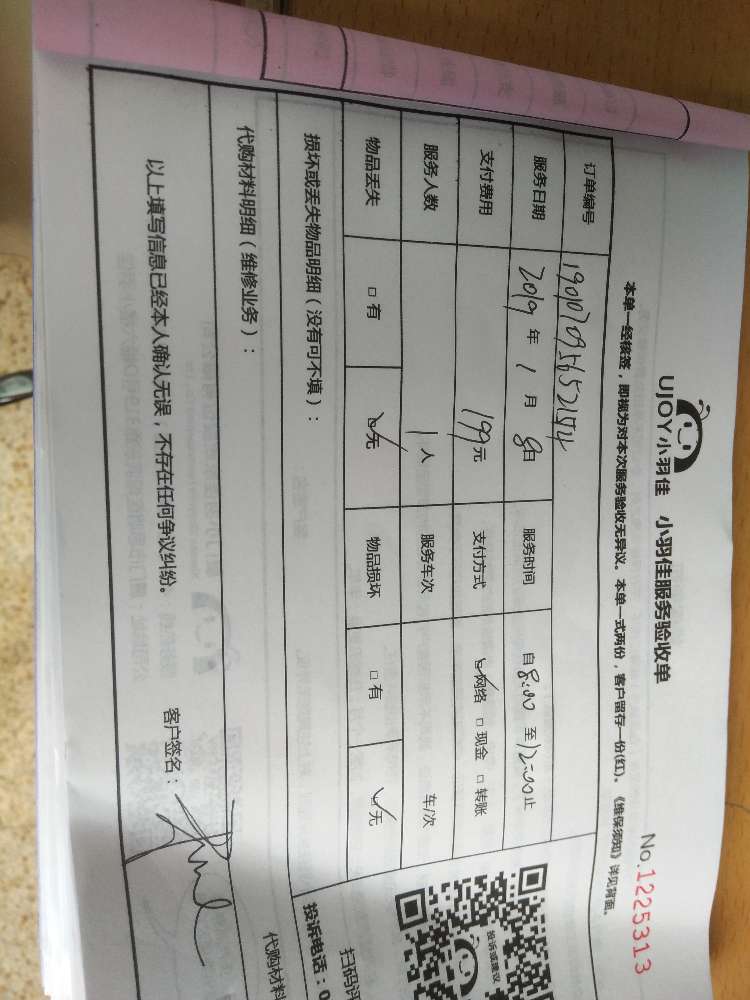 UJOY小羽佳 小羽佳服务验收单
No.1225313
本单一经核签，即视为对本次服务验收无异议。本单一式两份，客户留存一份(红)。《维保须知》详见背面。
订单编号 190107095652154
服务日期 2019年1月8日 服务时间 自8:00至12:00止
支付费用 199元 支付方式 ☑网络 □现金 □转账
服务人数 1人 服务车次 车/次
物品丢失 □有 ☑无 物品损坏 □有 ☑无
损坏或丢失物品明细（没有可不填）：
代购材料明细（维修业务）： 代购材料
以上填写信息已经本人确认无误，不存在任何争议纠纷。
客户签名：
投诉或建议
扫码评
投诉电话：0